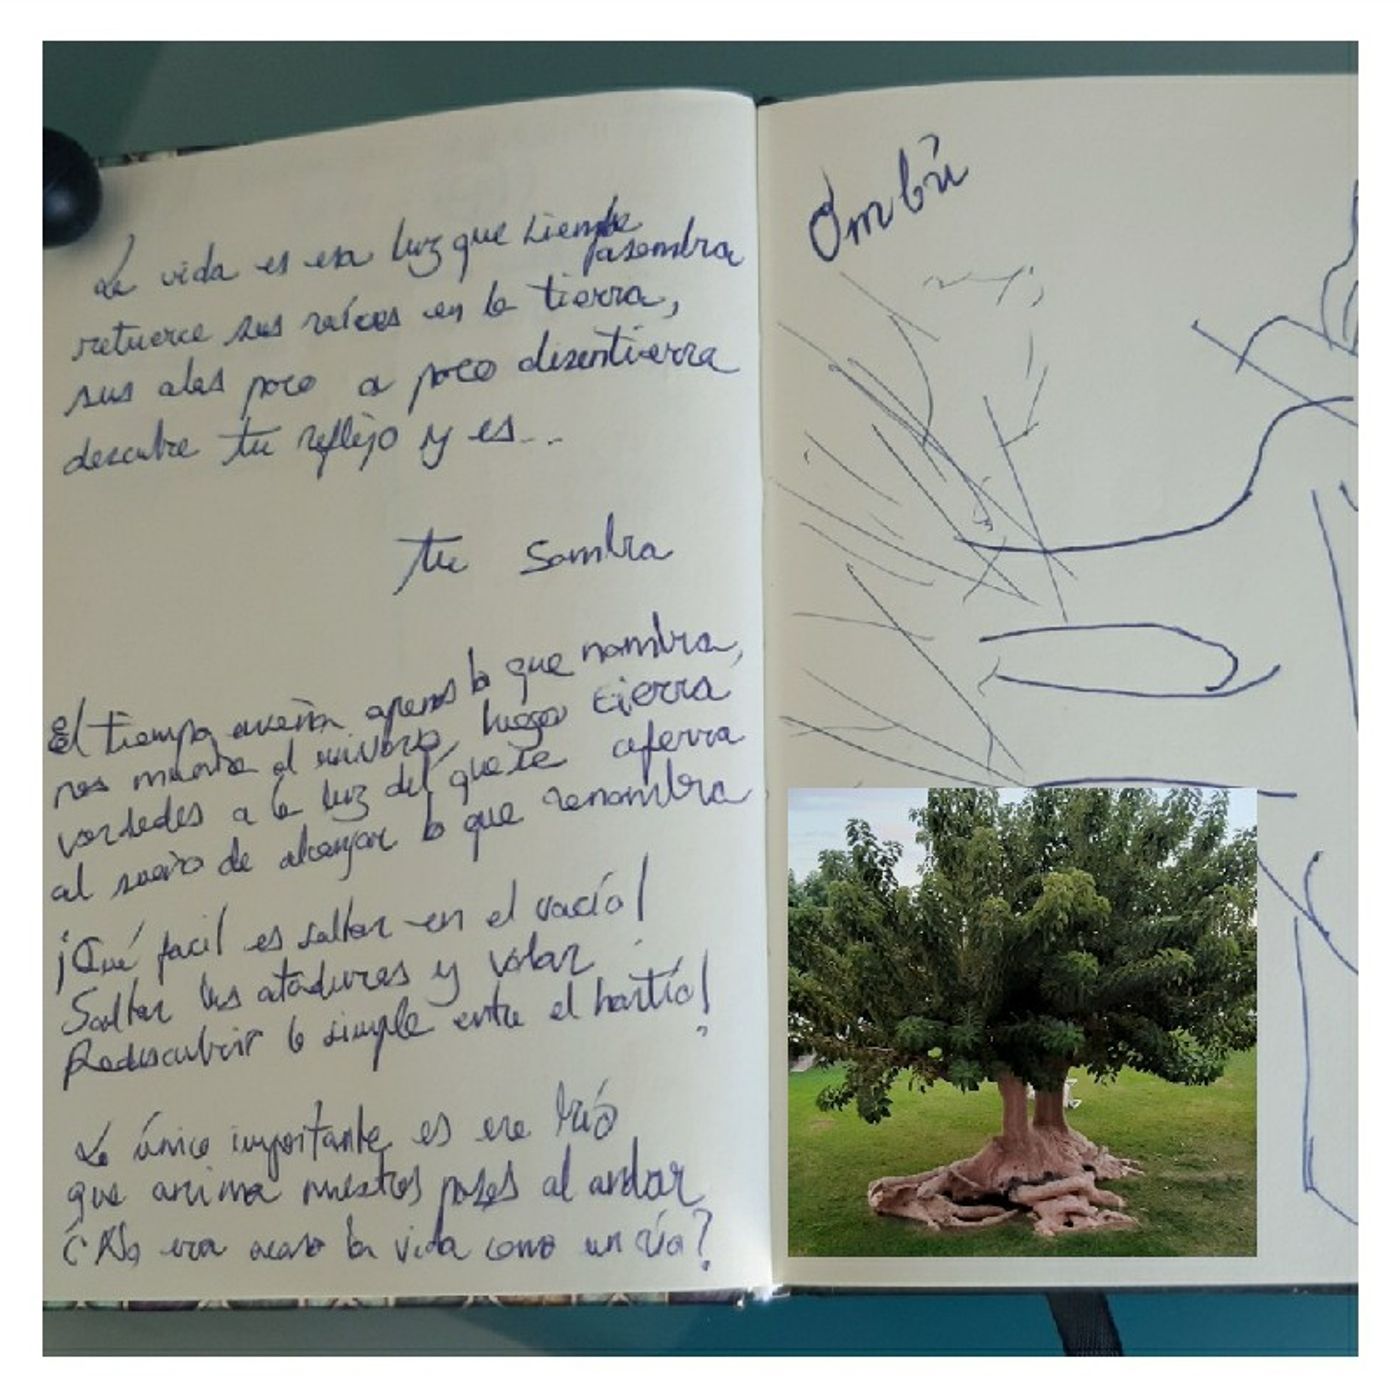 La vida es esa luz que siembra
asombra
retuerce sus raíces en la tierra,
sus alas poco a poco desentierra
descubre tu reflejo y es...
tu sombra
El tiempo enseña apenas lo que nombra,
nos muestra el universo, luego cierra
verdades a la luz del que te aferra
al sueño de alcanzar lo que renombra
¡Qué facil es saltar en el vacío!
Soltar las ataduras y volar
Redescubrir lo simple entre el hastío!
Lo único importante es ese brío
que anima nuestros pasos al andar
¿No era acaso la vida como un río?
Ombú